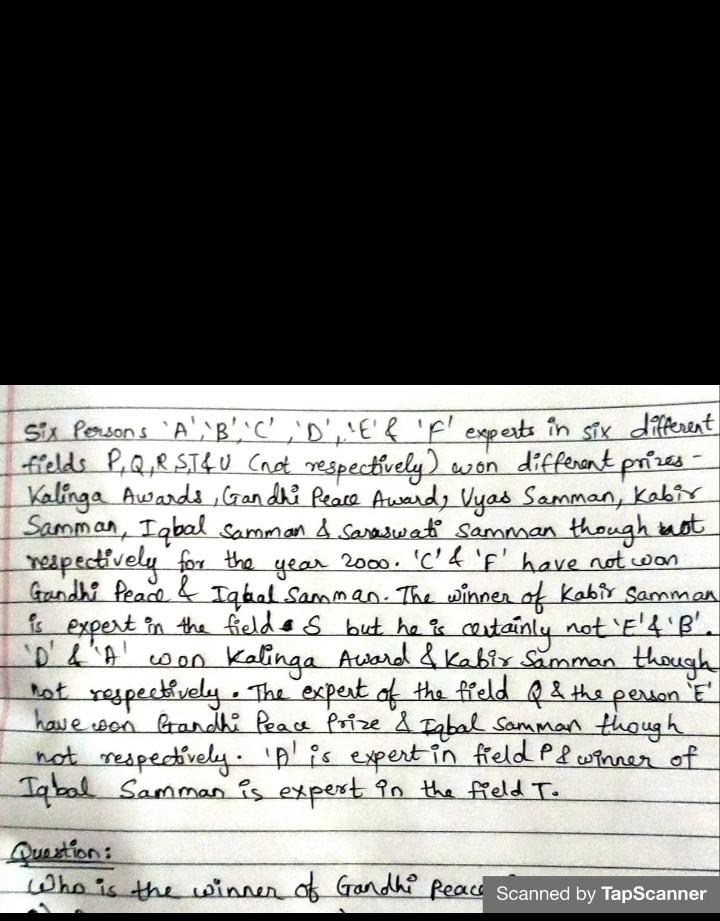 Six Persons 'A', 'B', 'C', 'D', 'E' & 'F' experts in six different
fields P, Q, R S, T & U (not respectively) won different prizes -
Kalinga Awards, Gandhi Peace Award, Vyas Samman, Kabir
Samman, Iqbal Samman & Saraswati Samman though not
respectively for the year 2000. 'C' & 'F' have not won
Gandhi Peace & Iqbal Samman. The winner of Kabir Samman
is expert in the field S but he is certainly not 'E' & 'B'.
'D' & 'A' won Kalinga Award & Kabir Samman though
not respectively. The expert of the field Q & the person 'E'
have won Grandhi Peace Prize & Iqbal Samman though
not respectively. 'A' is expert in field P & winner of
Iqbal Samman is expert in the field T.
Question:
Who is the winner of Gandhi Peace
Scanned by TapScanner